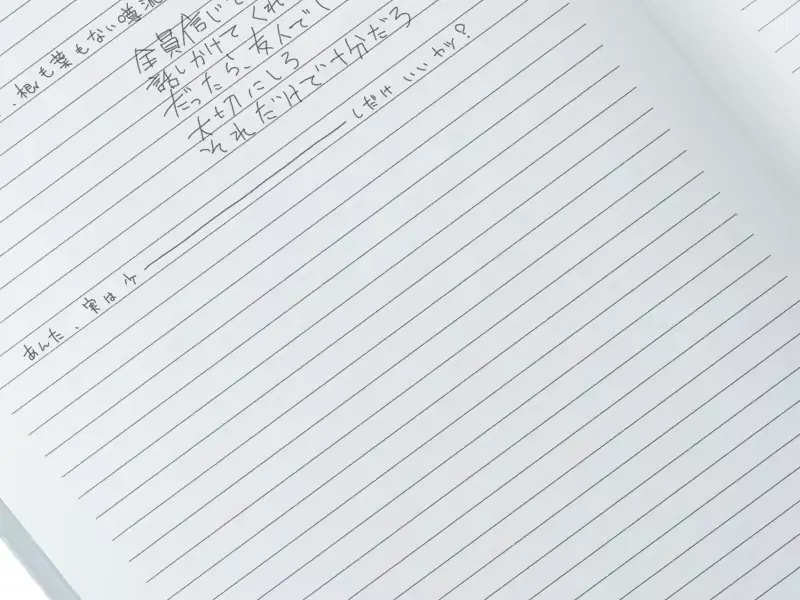 、根も葉もない噂
全員信じて
話しかけてくれ
だったら、友人でし
大切にしろ
それだけで十分だろ
あんた、実は少――――しだけ いいヤツ?